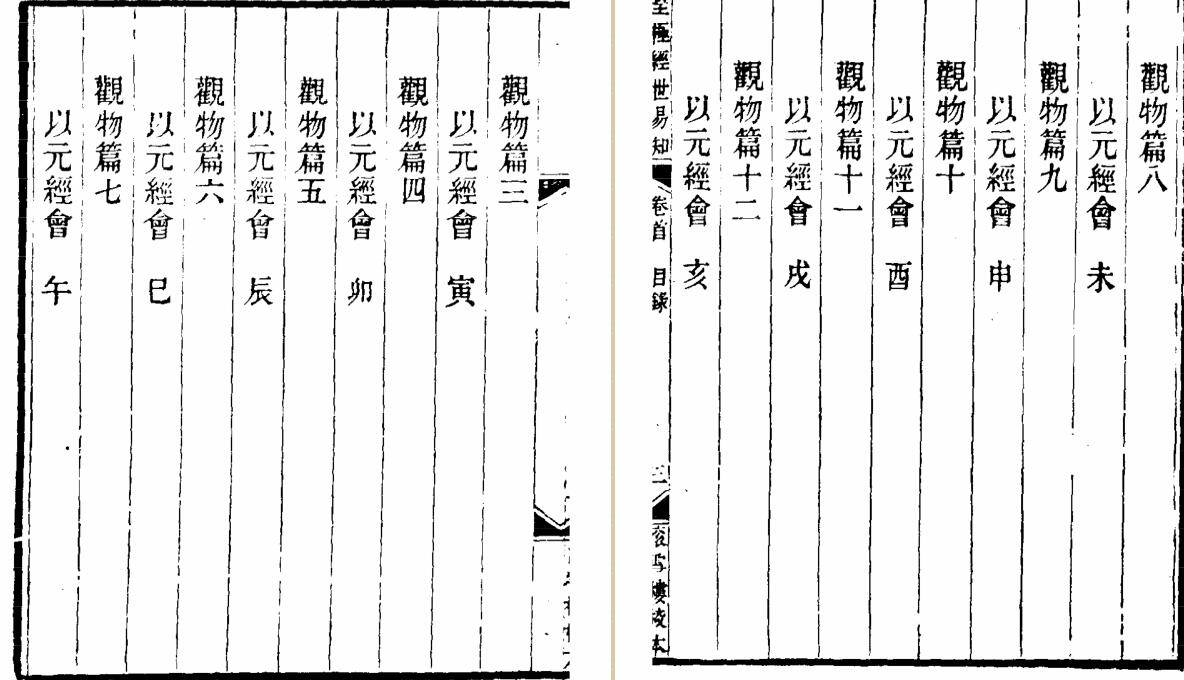 觀物篇三
以元經會　寅
觀物篇四
以元經會　卯
觀物篇五
以元經會　辰
觀物篇六
以元經會　巳
觀物篇七
以元經會　午
觀物篇八
以元經會　未
觀物篇九
以元經會　申
觀物篇十
以元經會　酉
觀物篇十一
以元經會　戌
觀物篇十二
以元經會　亥
極經世易知　卷首　目錄　三